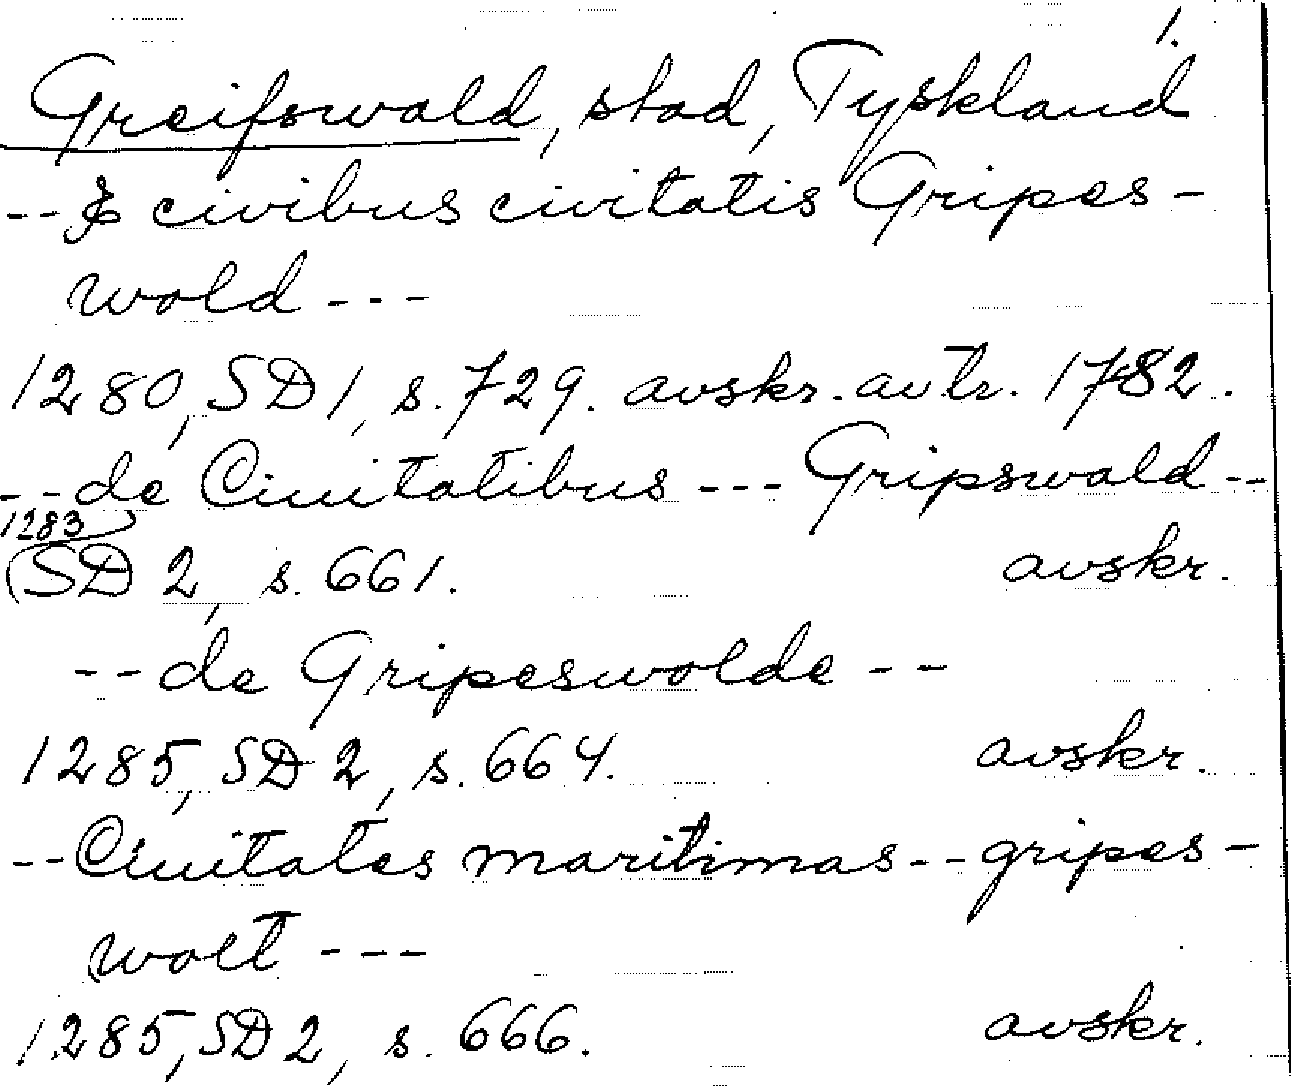 1.
Greifswald, stad, Tyskland
-- & civibus civitatis Gripes-
wold ---
1280, SD 1, s. 729. avskr. av tr. 1782.
-- de Ciuitatibus --- Gripswald --
1283
(SD 2, s. 661. avskr.
-- de Gripeswolde --
1285, SD 2, s. 664. avskr.
-- Ciuitates maritimas -- gripes-
wolt ---
1285, SD 2, s. 666. avskr.